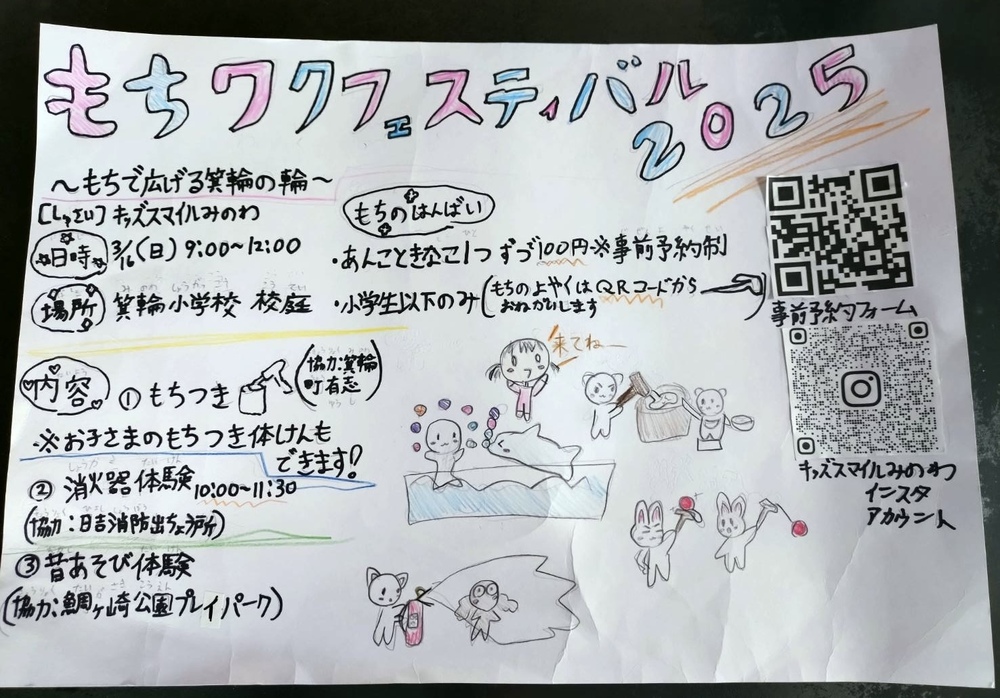 もちワクフェスティバル
2025
～もちで広げる箕輪の輪～
[しゅさい] キッズスマイルみのわ
日時 3/16(日) 9:00～12:00
場所 箕輪小学校 校庭
もちのはんばい
・あんこときなこ1つずつ100円※事前予約制
・小学生以下のみ
(もちのよやくはQRコードから
おねがいします
事前予約フォーム
キッズスマイルみのわ
インスタ
アカウント
内容 ①もちつき
(協力:箕輪
町有志)
※お子さまのもちつき体けんも
できます!
②消火器体験 10:00～11:30
(協力:日吉消防出ちょう所)
③昔あそび体験
(協力:鯛ヶ崎公園プレイパーク)
来てねー